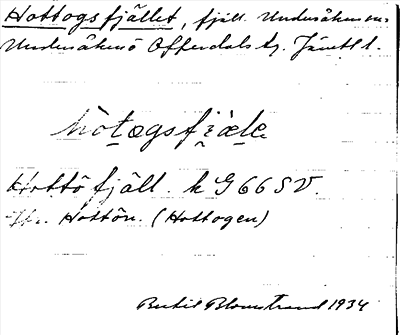 Hottogsfjället, fjäll. Undersåkers sn.
Undersåkers o Offerdals tg. Jämtl l.
hòtogsfjæle
Hottö fjäll. k G 66 SV.
Hottön. (Hottogen)
Bertil Blomstrand 1934